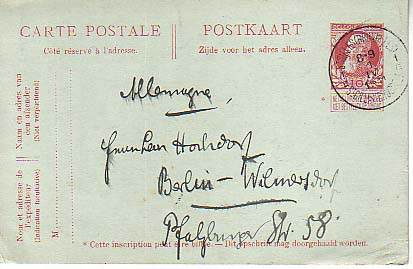 CARTE POSTALE
POSTKAART
Côté réservé à l'adresse.
Zijde voor het adres alleen.
10
Naam en adres van
den afzender
(Niet verplichtend)
Nom et adresse de
l'expéditeur
(Indication facultative)
M
Allemagne
Hochdorf
Berlin – Wilmersdorf
Pfalzburger Str. 58.
* Cette inscription peut être biffée. – Dit opschrift mag doorgehaald worden.